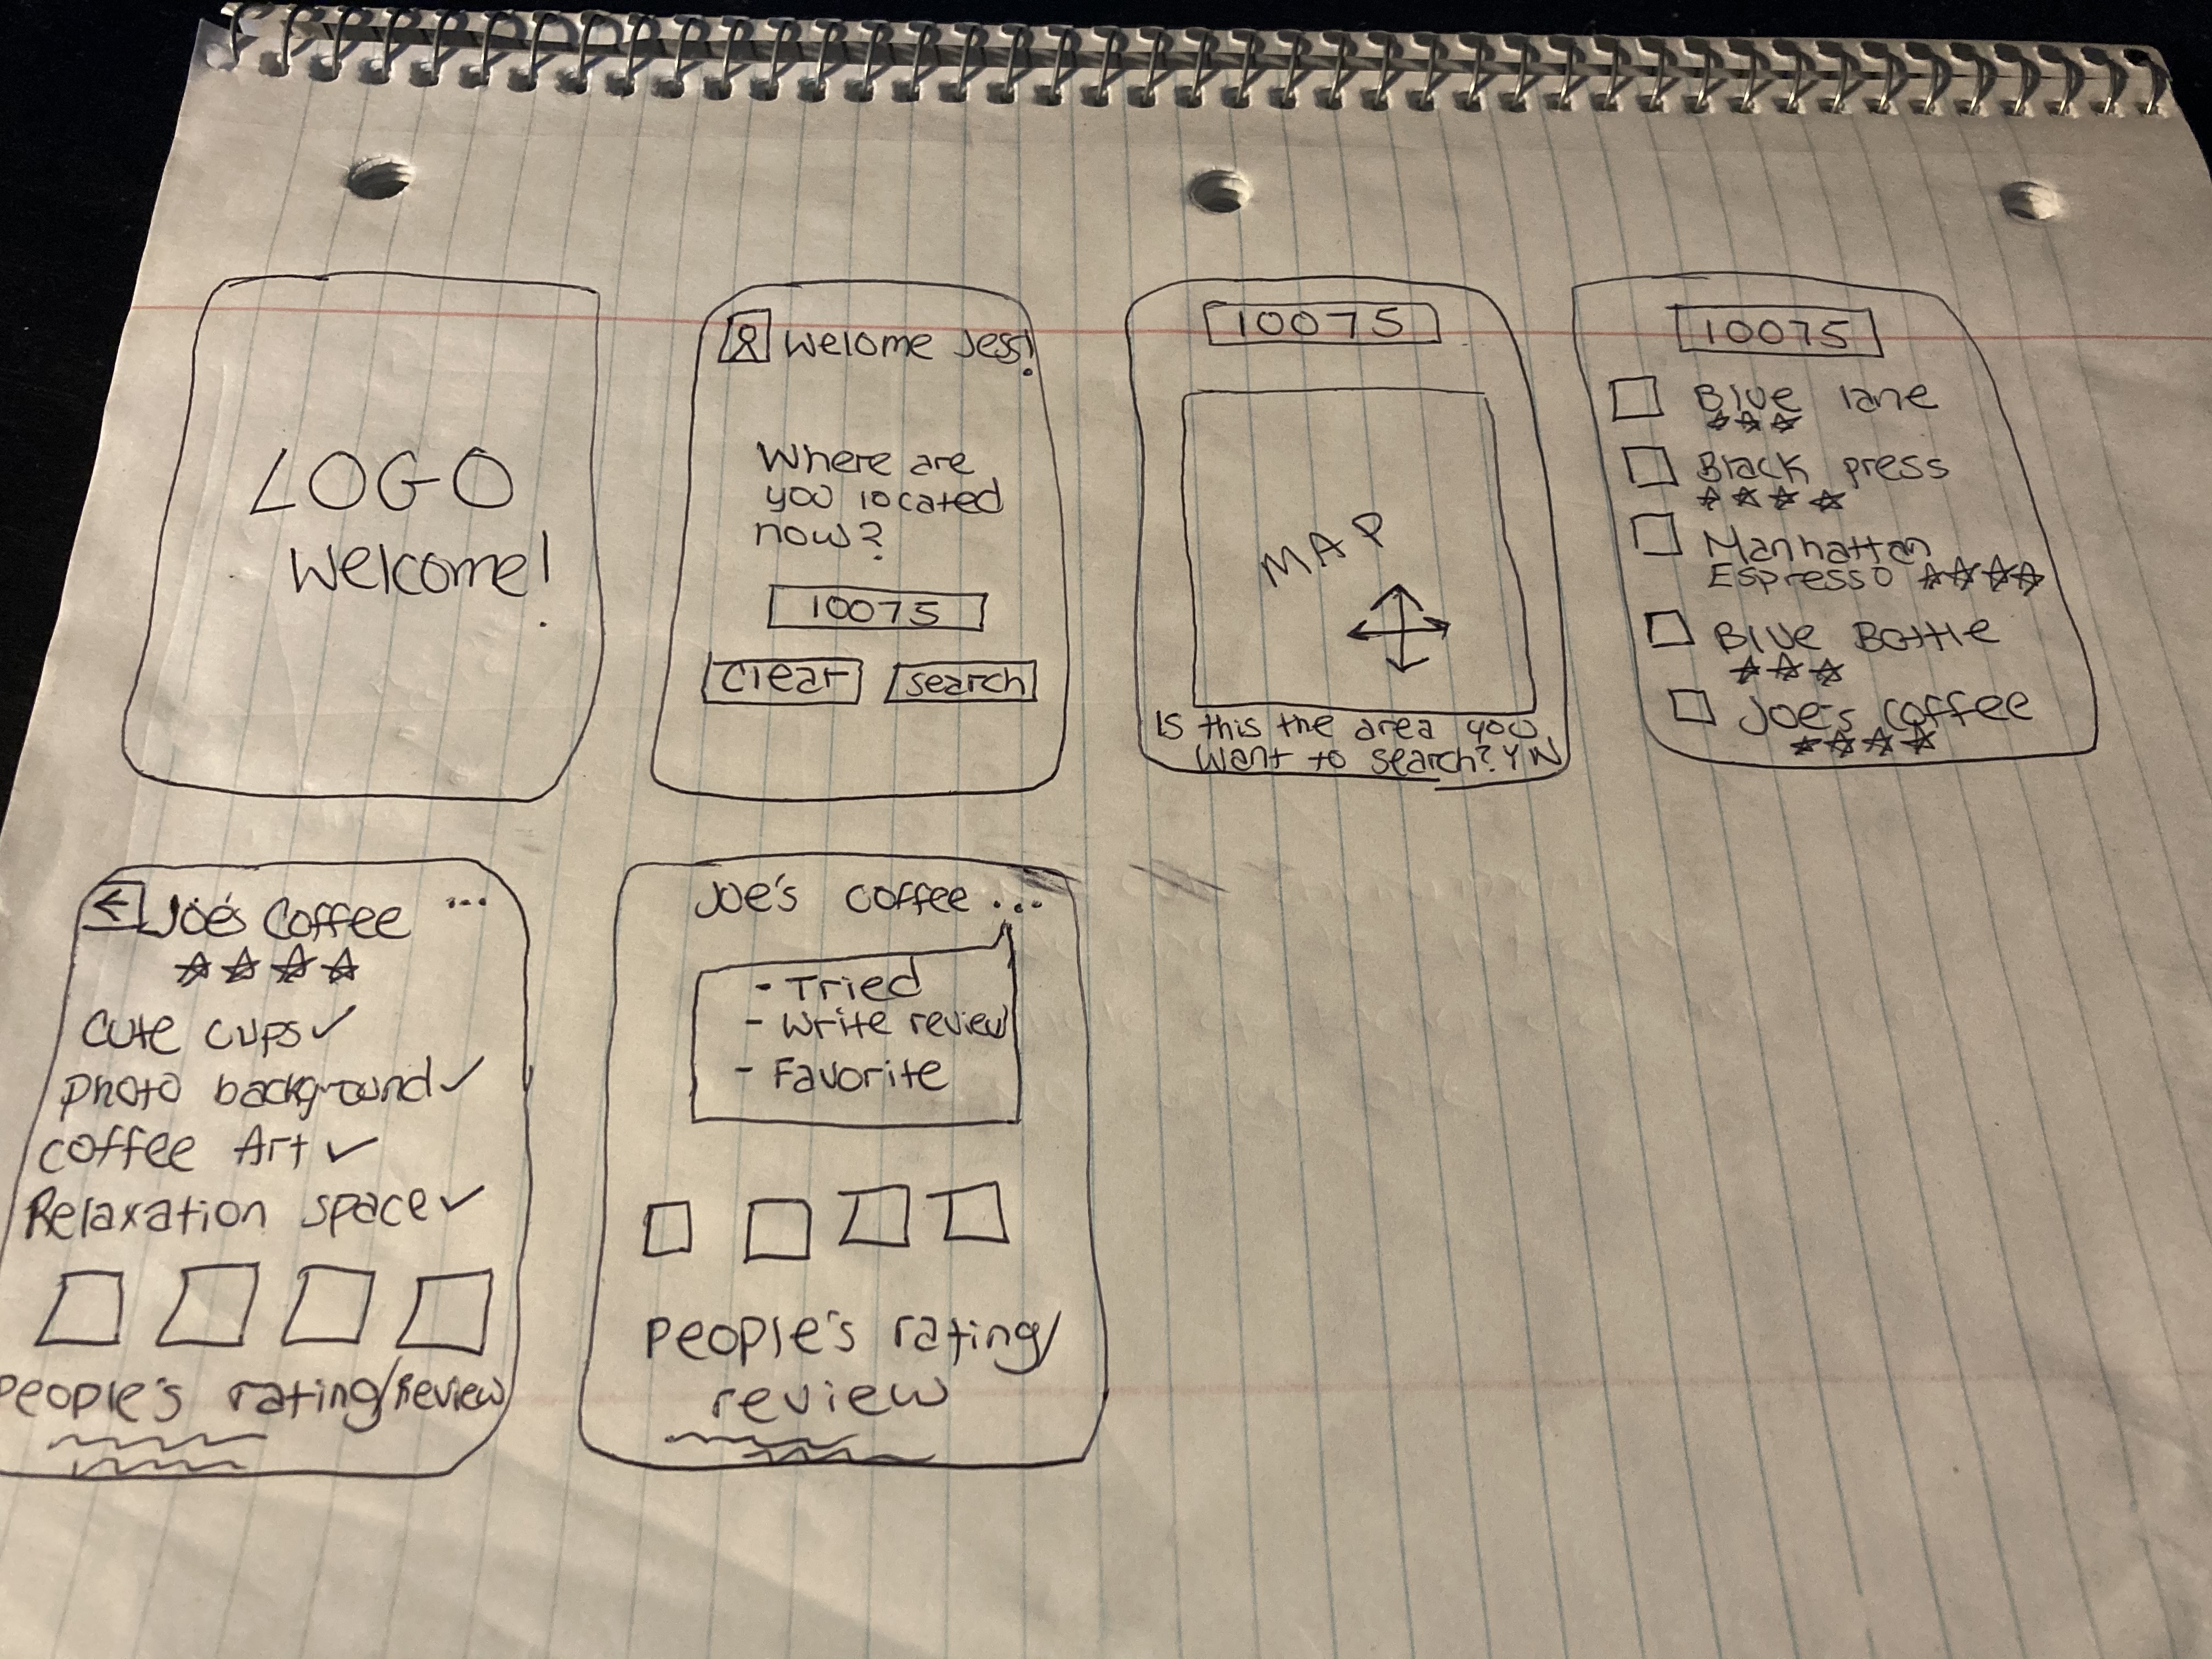 LOGO
Welcome!
Welome Jess!
Where are
you located
now?
10075
Clear
Search
10075
MAP
Is this the area you
want to search? Y N
10075
Blue lane
Black press
Manhattan
Espresso
Blue Bottle
Joe's Coffee
Joe's Coffee ...
Cute cups ✓
photo background ✓
coffee Art ✓
Relaxation space ✓
People's rating/Review
Joe's coffee ...
- Tried
- Write review
- Favorite
People's rating/
review